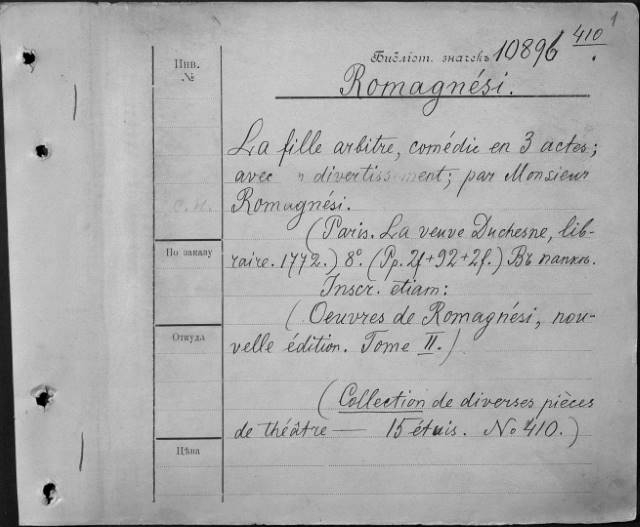 1
Инв.
№
Библіот. значекъ 10896 410.
Romagnési.
La fille arbitre, comédie en 3 actes;
avec divertissement; par Monsieur
Romagnési.
(Paris. La veuve Duchesne, lib-
По заказу
raire. 1772.) 8º. (Pp. 2f+92+2f.) Въ папкѣ.
Inscr. etiam:
(Oeuvres de Romagnési, nou-
Откуда
velle édition. Tome II.)
(Collection de diverses pièces
de théâtre — 15 étuis. No 410.)
Цѣна